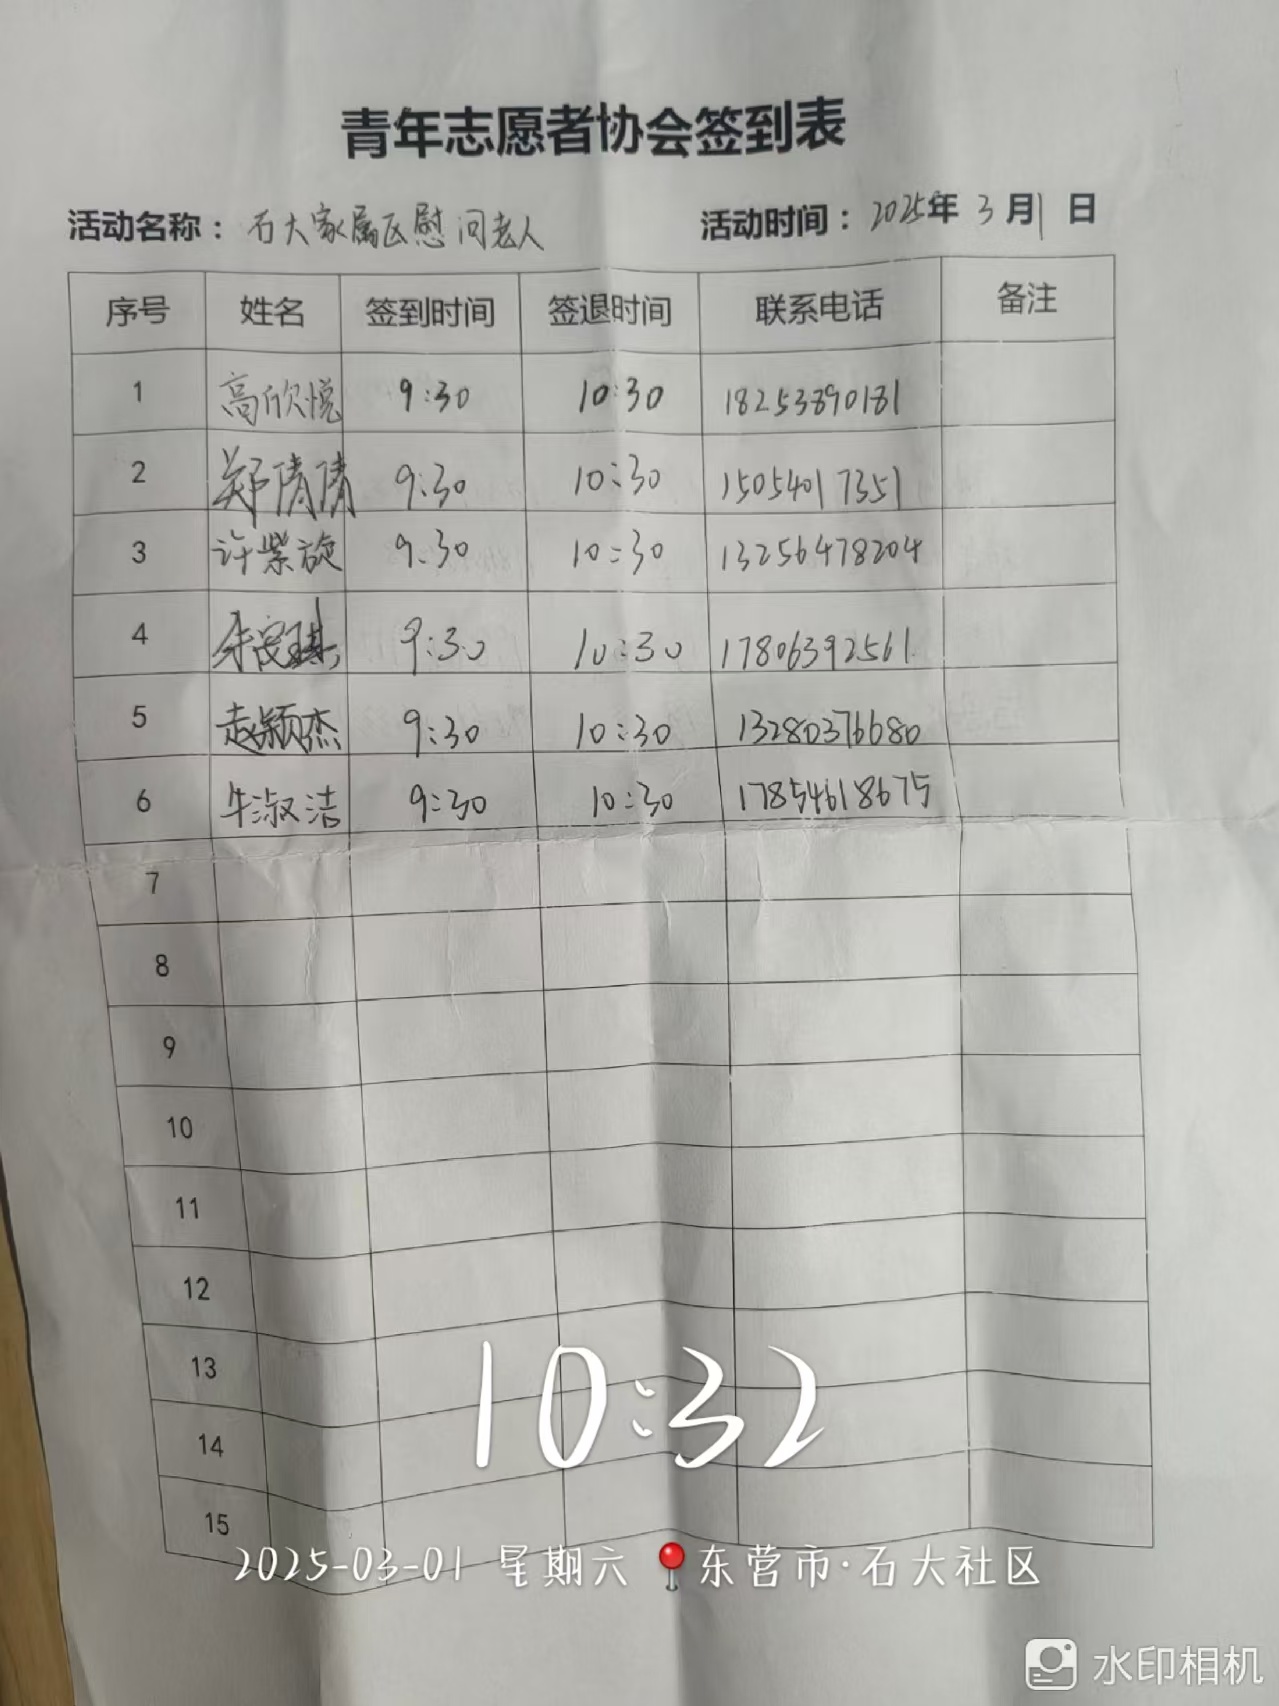 青年志愿者协会签到表
活动名称：石大家属区慰问老人 活动时间：2025年3月1日
序号 姓名 签到时间 签退时间 联系电话 备注
1 高欣悦 9:30 10:30 18253890181
2 郑倩倩 9:30 10:30 15054017351
3 许紫旋 9:30 10:30 13256478204
4 9:30 10:30 17806392561
5 赵颖杰 9:30 10:30 13280376680
6 牛淑洁 9:30 10:30 17854618675
7
8
9
10
11
12
13
14
15
10:32
2025-03-01 星期六 东营市·石大社区
水印相机